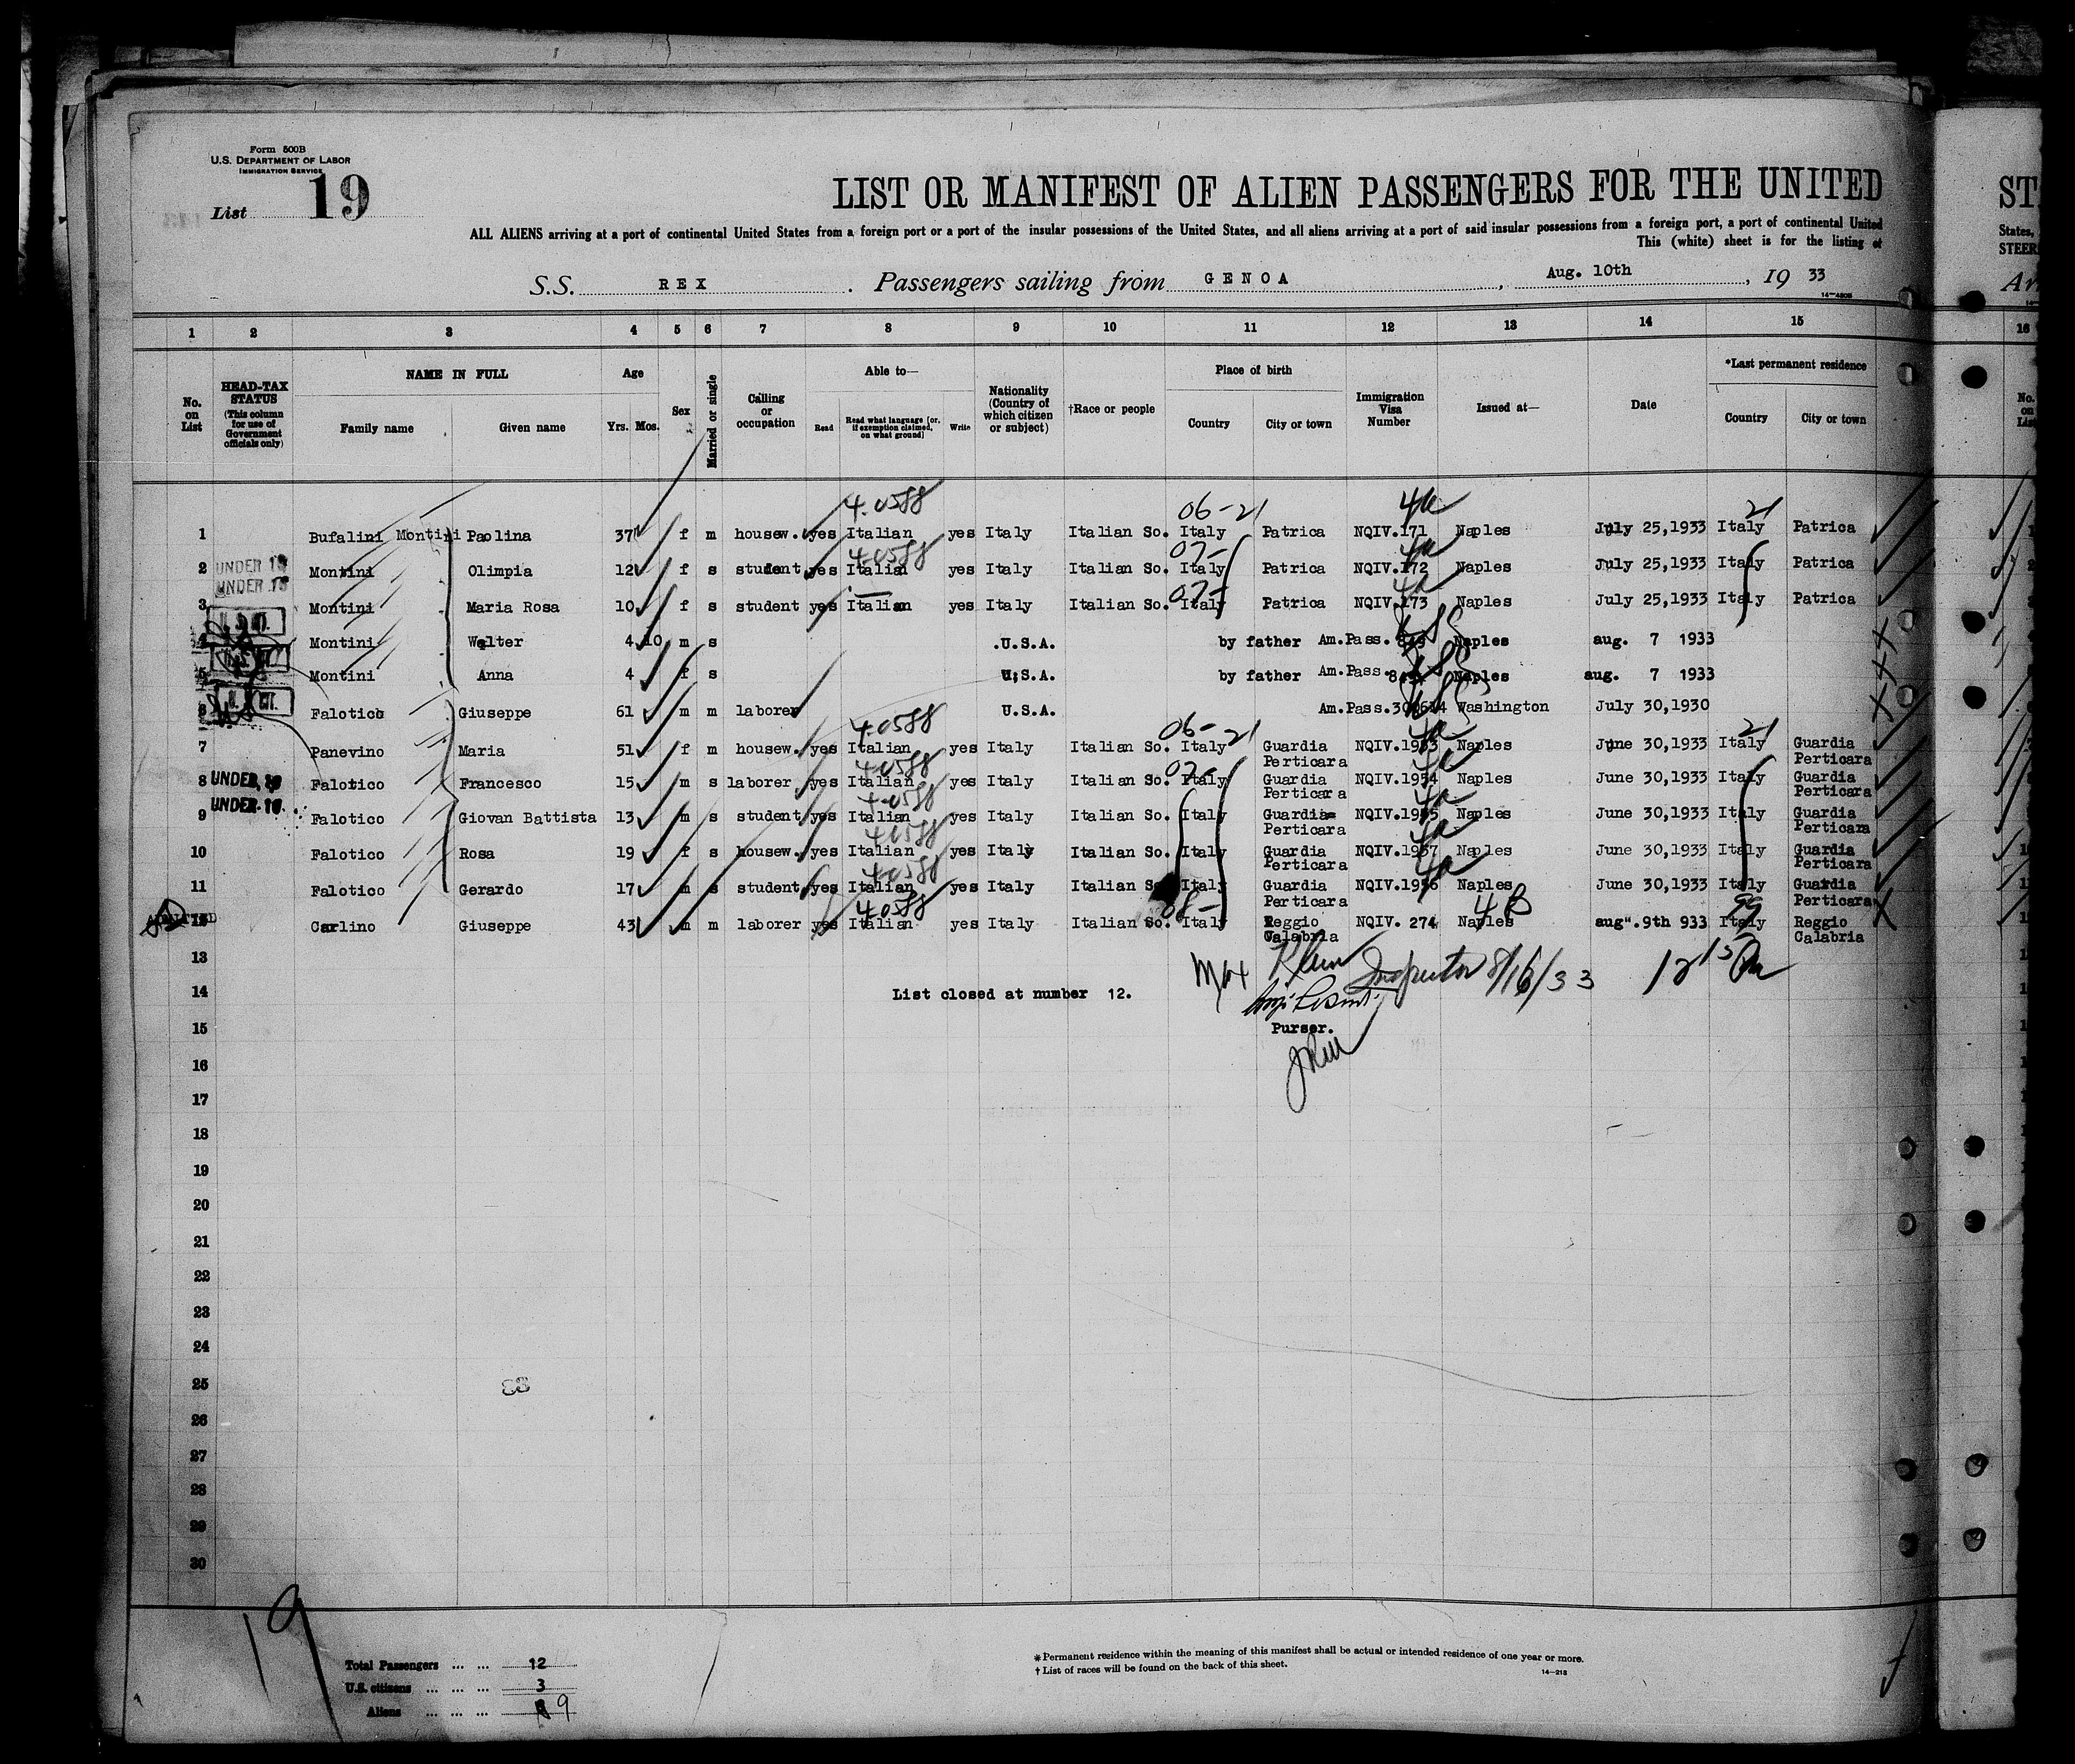 Form 500B
U.S. DEPARTMENT OF LABOR
IMMIGRATION SERVICE
List 19
LIST OR MANIFEST OF ALIEN PASSENGERS FOR THE UNITED
ALL ALIENS arriving at a port of continental United States from a foreign port or a port of the insular possessions of the United States, and all aliens arriving at a port of said insular possessions from a foreign port, a port of continental United
This (white) sheet is for the listing of
S.S. REX . Passengers sailing from GENOA , Aug. 10th , 19 33
14-4808
ST
States,
STEER
Ar
1 2 3 4 5 6 7 8 9 10 11 12 13 14 15 16
No. on List
HEAD-TAX STATUS (This column for use of Government officials only)
NAME IN FULL
Family name Given name
Age
Yrs. Mos.
Sex
Married or single
Calling or occupation
Able to—
Read Read what language [or, if exemption claimed, on what ground] Write
Nationality (Country of which citizen or subject)
†Race or people
Place of birth
Country City or town
Immigration Visa Number
Issued at—
Date
*Last permanent residence
Country City or town
4-0588 06-21 4a 21
1 Bufalini Montini Paolina 37 f m housew. yes Italian yes Italy Italian So. Italy Patrica NQIV.171 Naples July 25,1933 Italy Patrica
UNDER 16 4-0588 07- 4a
2 Montini Olimpia 12 f s student yes Italian yes Italy Italian So. Italy Patrica NQIV.172 Naples July 25,1933 Italy Patrica
UNDER 16 07- 4a
3 Montini Maria Rosa 10 f s student yes Italian yes Italy Italian So. Italy Patrica NQIV.173 Naples July 25,1933 Italy Patrica
4 Montini Walter 4 10 m s .U.S.A. by father Am.Pass. Naples aug. 7 1933
5 Montini Anna 4 f s U.S.A. by father Am.Pass. Naples aug. 7 1933
6 Falotico Giuseppe 61 m m laborer U.S.A. Am.Pass. Washington July 30,1930
4-0588 06-21 4a 21
7 Panevino Maria 51 f m housew. yes Italian yes Italy Italian So. Italy Guardia Perticara NQIV.1953 Naples June 30,1933 Italy Guardia Perticara
4-0588 07- 4a
8 UNDER 16 Falotico Francesco 15 m s laborer yes Italian yes Italy Italian So. Italy Guardia Perticara NQIV.1954 Naples June 30,1933 Italy Guardia Perticara
UNDER 16 4-0588 4a
9 Falotico Giovan Battista 13 m s student yes Italian yes Italy Italian So. Italy Guardia Perticara NQIV.1955 Naples June 30,1933 Italy Guardia Perticara
4-0588 4a
10 Falotico Rosa 19 f s housew. yes Italian yes Italy Italian So. Italy Guardia Perticara NQIV.1957 Naples June 30,1933 Italy Guardia Perticara
4-0588 4a
11 Falotico Gerardo 17 m s student yes Italian yes Italy Italian So. Italy Guardia Perticara NQIV.1956 Naples June 30,1933 Italy Guardia Perticara
ADMITTED 4-0588 08- 4B 99
12 Carlino Giuseppe 43 m m laborer yes Italian yes Italy Italian So. Italy Reggio Calabria NQIV. 274 Naples aug".9th 933 Italy Reggio Calabria
13 Max Klein Inspector 8/16/33
14 List closed at number 12.
15 Purser.
16
17
18
19
20
21
22
23
24
25
26
27
28
29
30
83
19
Total Passengers ... ... 12
U.S. citizens ... ... ... 3
Aliens ... ... ... 9
*Permanent residence within the meaning of this manifest shall be actual or intended residence of one year or more.
†List of races will be found on the back of this sheet.
14-213